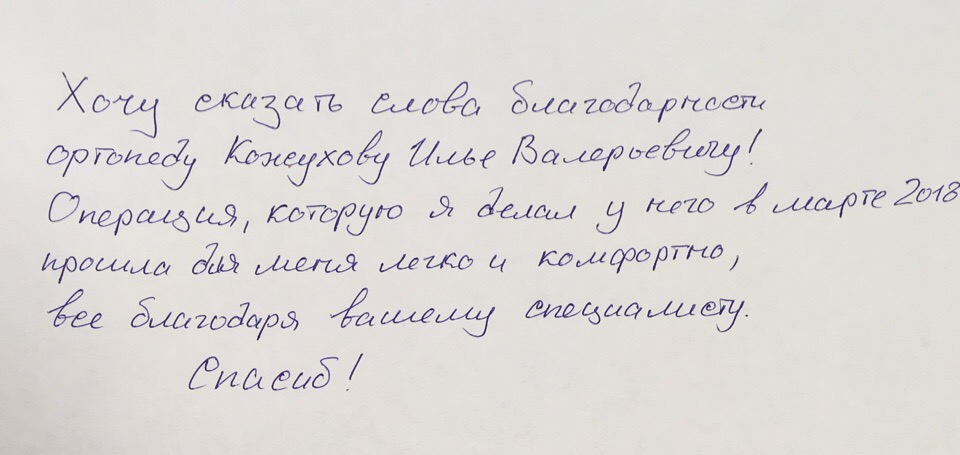 Хочу сказать слова благодарности
ортопеду Кожухову Илье Валерьевичу!
Операция, которую я делал у него в марте 2018
прошла для меня легко и комфортно,
все благодаря вашему специалисту.
Спасиб!